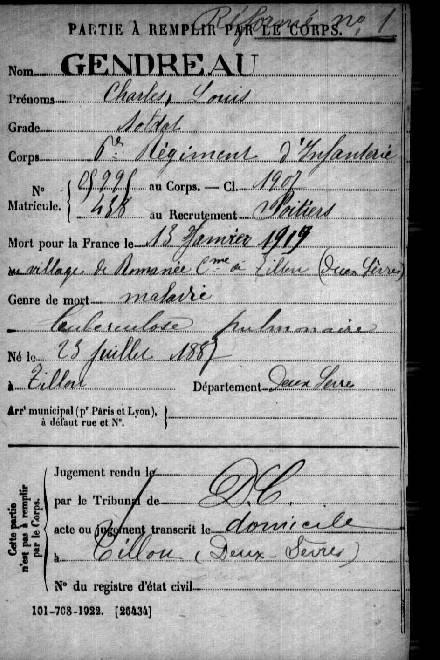 Réformé no 1
PARTIE À REMPLIR PAR LE CORPS.
Nom GENDREAU
Prénoms Charles, Louis
Grade Soldat
Corps 6e Régiment d'Infanterie
N° Matricule. { au Corps. — Cl. 1907
438 au Recrutement Poitiers
Mort pour la France le 13 Janvier 1919
au village de Romanée Cne de Tillou (Deux Sèvres)
Genre de mort maladie
tuberculose pulmonaire
Né le 23 juillet 1887
à Tillou Département Deux Sèvres
Arrt municipal (pr Paris et Lyon),
à défaut rue et N°.
Cette partie n'est pas à remplir par le Corps.
Jugement rendu le
par le Tribunal de DC
acte ou jugement transcrit le domicile
à Tillou (Deux-Sèvres)
N° du registre d'état civil
101-708-1922. [26434]